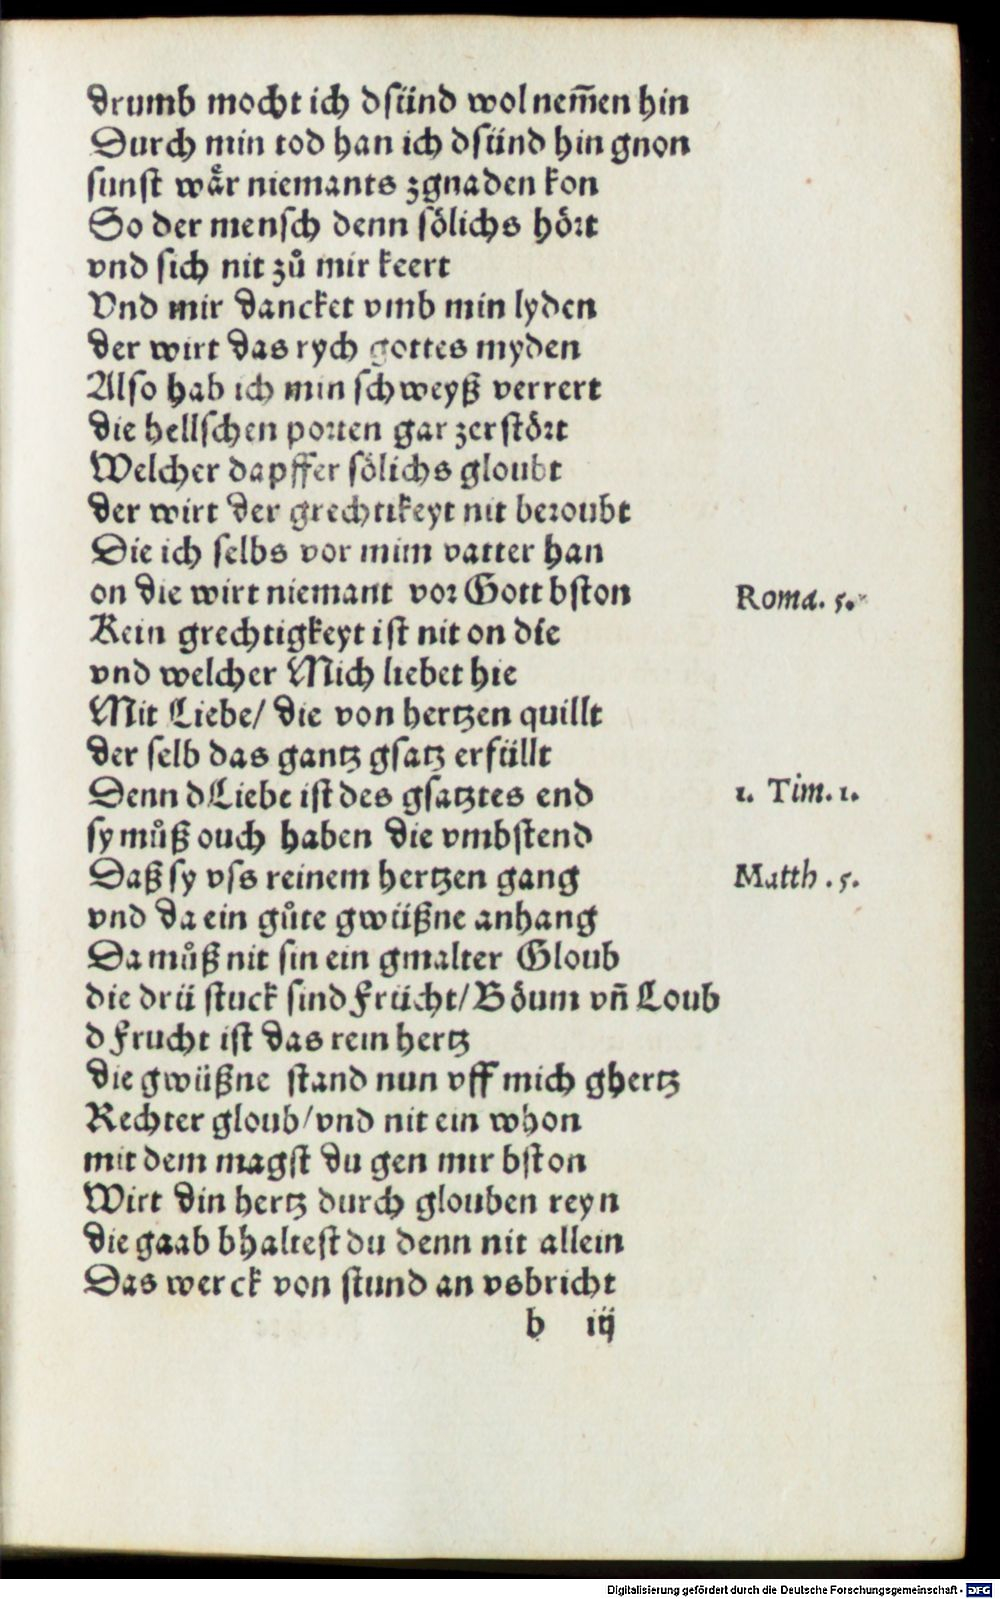 drumb mocht ich dsünd wol nem̄en hin
Durch min tod han ich dsünd hin gnon
sunst wåͤr niemants zgnaden kon
So der mensch denn sölichs hört
vnd sich nit zů mir keert
Vnd mir dancket vmb min lyden
der wirt das rych gottes myden
Also hab ich min schweyß verrert
die hellschen porten gar zerstört
Welcher dapffer sölichs gloubt
der wirt der grechtikeyt nit beroubt
Die ich selbs vor mim vatter han
on die wirt niemant vor Gott bston
Roma. 5.
Kein grechtigkeyt ist nit on die
vnd welcher Mich liebet hie
Mit Liebe/ die von hertzen quillt
der selb das gantz gsatz erfüllt
Denn dLiebe ist des gsatztes end
1. Tim. 1.
sy můß ouch haben die vmbstend
Daß sy vss reinem hertzen gang
Matth. 5.
vnd da ein gůte gwüßne anhang
Da můß nit sin ein gmalter Gloub
die drü stuck sind Frücht/ Böum vn̄ Loub
d Frucht ist das rein hertz
die gwüßne stand nun vff mich ghertz
Rechter gloub/ vnd nit ein whon
mit dem magst du gen mir bston
Wirt din hertz durch glouben reyn
die gaab bhaltest du denn nit allein
Das werck von stund an vsbricht
b iij
Digitalisierung gefördert durch die Deutsche Forschungsgemeinschaft - DFG